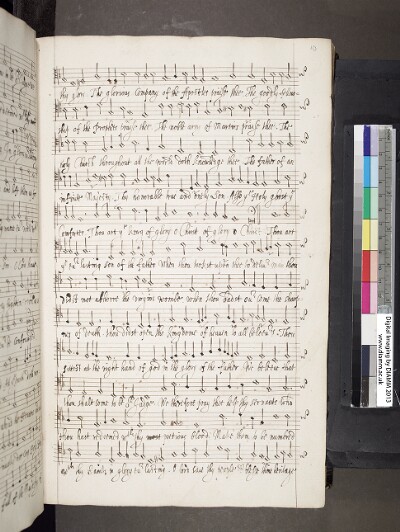 thy glory The glorious Company of the Apostles praise thee The goodly fellow-
ship of the Prophets praise thee The noble army of Martyrs praise thee The
holy Church throughout all the world doth knowledge thee The father of an
infinite Majesty Thy honorable true and only Son Also ye holy ghost ye
Comforter Thou art ye King of glory O Christ of glory O Christ Thou art
ye lasting son of the father When thou tookest upon thee to man thou
didst not abhorre the virgins wombe When thou hadst over come the sharp-
nes of death thou didst open the kingdome of heaven to all Thou
sittest at the right hand of god in the glory of the father We believe that
thou shalt come to be Judge We therefore pray thee help thy servants whom
thou hast redeemed with thy pretious blood Make them to be numbered
with thy Saints in glory lasting O lord save thy people heritage
Digital Imaging by DIAMM 2013
www.diamm.ac.uk